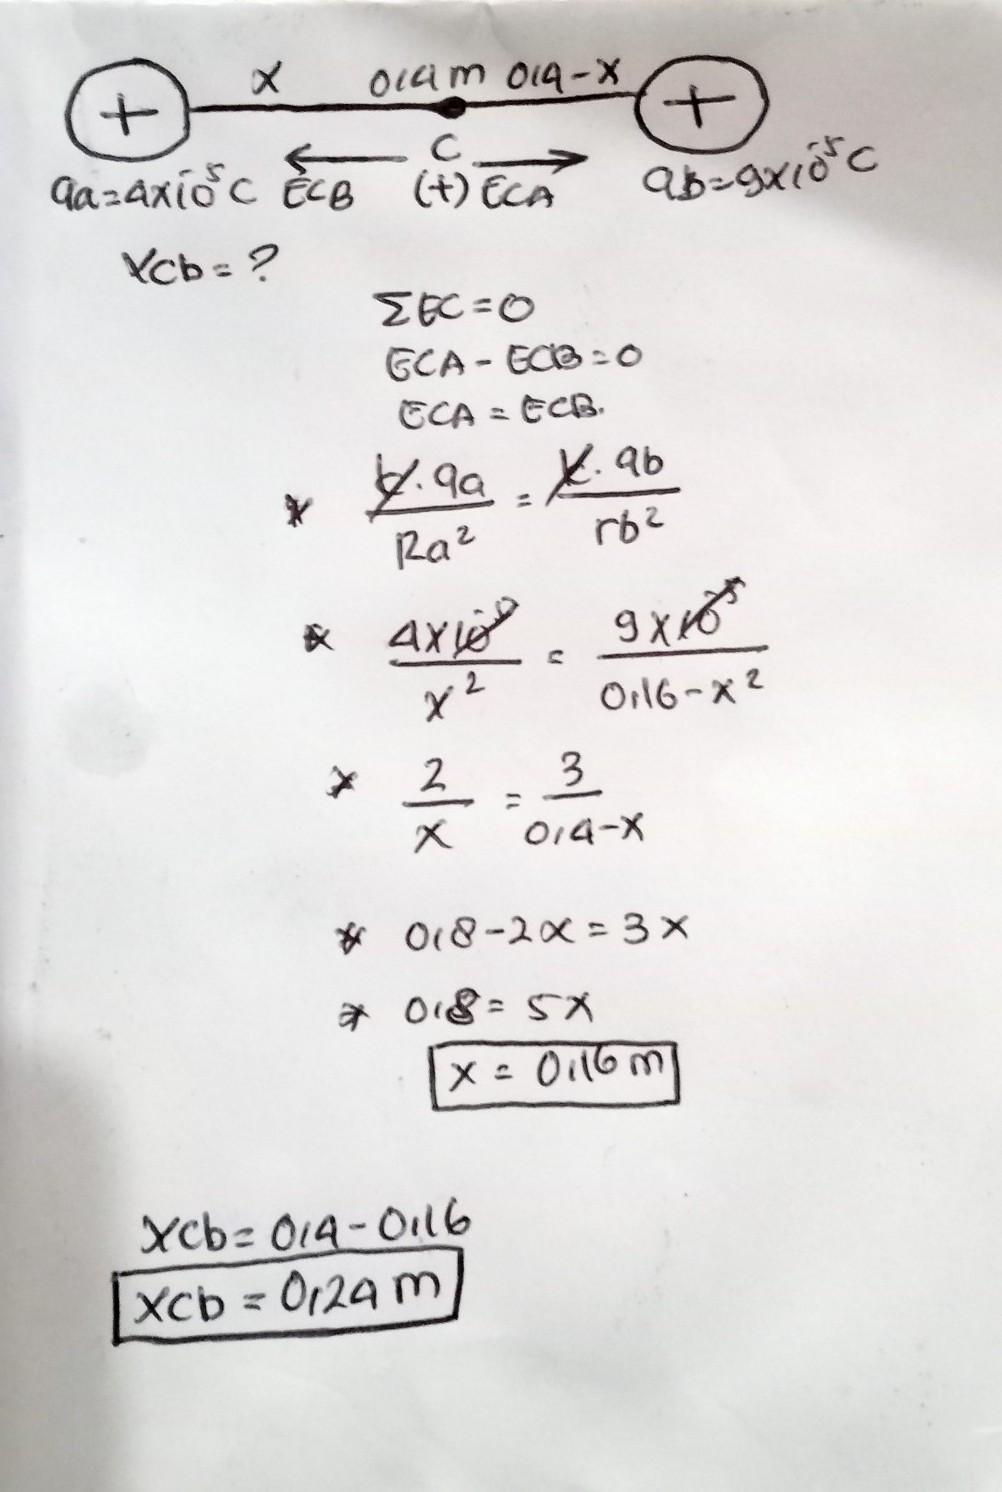 + x 0,4m 0,4-x +
qa=4x10^-5 C ECB C (+) ECA qb=9x10^-5 C
xcb=?
ΣEC=0
ECA-ECB=0
ECA=ECB.
* k.qa/Ra² = k.qb/rb²
* 4x10/x² = 9x10^-5/0,16-x²
* 2/x = 3/0,4-x
* 0,8-2x=3x
* 0,8=5x
x=0,16m
xcb=0,4-0,16
xcb=0,24m